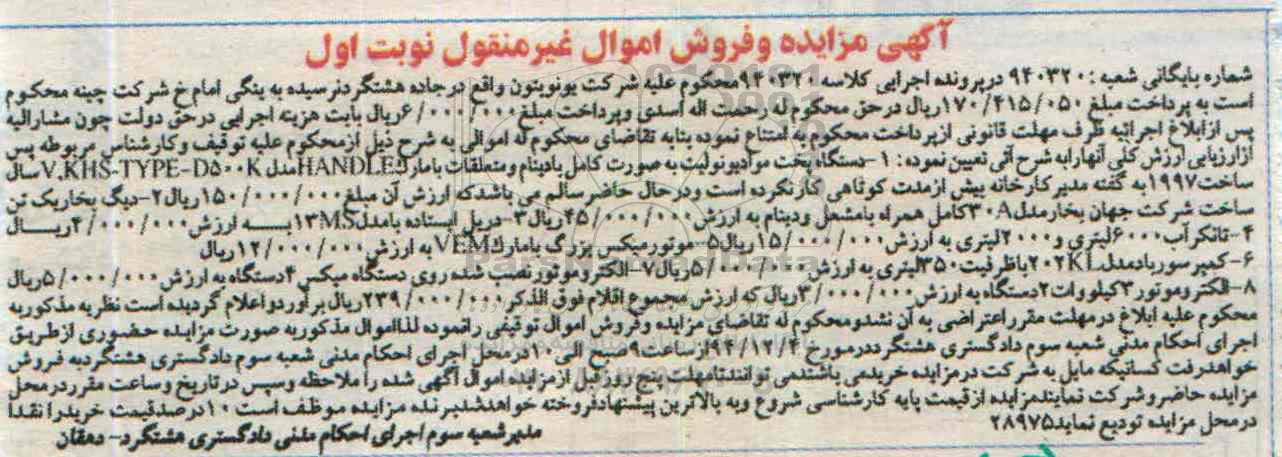 آگهی مزایده وفروش اموال غیرمنقول نوبت اول
شماره بایگانی شعبه : ۹۴۰۳۲۰ درپرونده اجرایی کلاسه ۹۴۰۳۲۰محکوم علیه شرکت یونویتون واقع درجاده هشتگردنرسیده به ینگی امام خ شرکت چینه محکوم
است به پرداخت مبلغ ۱۷۰/۴۱۵/۰۵۰ریال درحق محکوم له رحمت اله اسدی وپرداخت مبلغ۶/۰۰۰/۰۰۰ریال بابت هزینه اجرایی درحق دولت چون مشارالیه
پس ازابلاغ اجرائیه ظرف مهلت قانونی ازپرداخت محکوم به امتناع نموده بنابه تقاضای محکوم له اموالی به شرح ذیل ازمحکوم علیه توقیف وکارشناس مربوطه پس
ازارزیابی ارزش کلی آنهارابه شرح آتی تعیین نموده : ۱-دستگاه پخت موادیونولیت به صورت کامل بادینام ومتعلقات بامارکHANDLEمدل V.KHS-TYPE-D۵۰۰Kسال
ساخت۱۹۹۷به گفته مدیرکارخانه بیش ازمدت کوتاهی کارنکرده است ودرحال حاضرسالم می باشدکه ارزش آن مبلغ۱۵۰/۰۰۰/۰۰۰ریال۲-دیگ بخاریک تن
ساخت شرکت جهان بخارمدل۳۰Aکامل همراه بامشعل ودینام به ارزش۴۵/۰۰۰/۰۰۰ریال۳-دریل ایستاده بامدل۱۳MSبه ارزش۴/۰۰۰/۰۰۰ریال
۴-تانکرآب۶۰۰۰لیتری و۲۰۰۰لیتری به ارزش۱۵/۰۰۰/۰۰۰ریال۵-موتورمیکس بزرگ بامارکVEM به ارزش۱۲/۰۰۰/۰۰۰ریال
۶-کمپرسوربادمدل۲۰۲KLباظرفیت۳۵۰لیتری به ارزش۵/۰۰۰/۰۰۰ریال۷-الکتروموتورنصب شده روی دستگاه میکس۴دستگاه به ارزش۵/۰۰۰/۰۰۰ریال
۸-الکتروموتور۳کیلووات۲دستگاه به ارزش۳/۰۰۰/۰۰۰ریال که ارزش مجموع اقلام فوق الذکر۲۳۹/۰۰۰/۰۰۰ریال برآوردواعلام گردیده است نظربه مذکوربه
محکوم علیه ابلاغ درمهلت مقرراعتراضی به آن نشدومحکوم له تقاضای مزایده وفروش اموال توقیفی رانموده لذااموال مذکوربه صورت مزایده حضوری ازطریق
اجرای احکام مدنی شعبه سوم دادگستری هشتگرددرمورخ۹۴/۱۲/۴ازساعت۹صبح الی۱۰درمحل اجرای احکام مدنی شعبه سوم دادگستری هشتگردبه فروش
خواهدرفت کسانیکه مایل به شرکت درمزایده خریدمی باشندمی توانندتامهلت پنج روزقبل ازمزایده اموال آگهی شده راملاحظه وسپس درتاریخ وساعت مقرردرمحل
مزایده حاضروشرکت نمایندمزایده ازقیمت پایه کارشناسی شروع وبه بالاترین پیشنهادفروخته خواهدشدبرنده مزایده موظف است ۱۰درصدقیمت خریدرا نقدا
درمحل مزایده تودیع نماید۲۸۹۷۵
مدیرشعبه سوم اجرای احکام مدنی دادگستری هشتگرد- دهقان